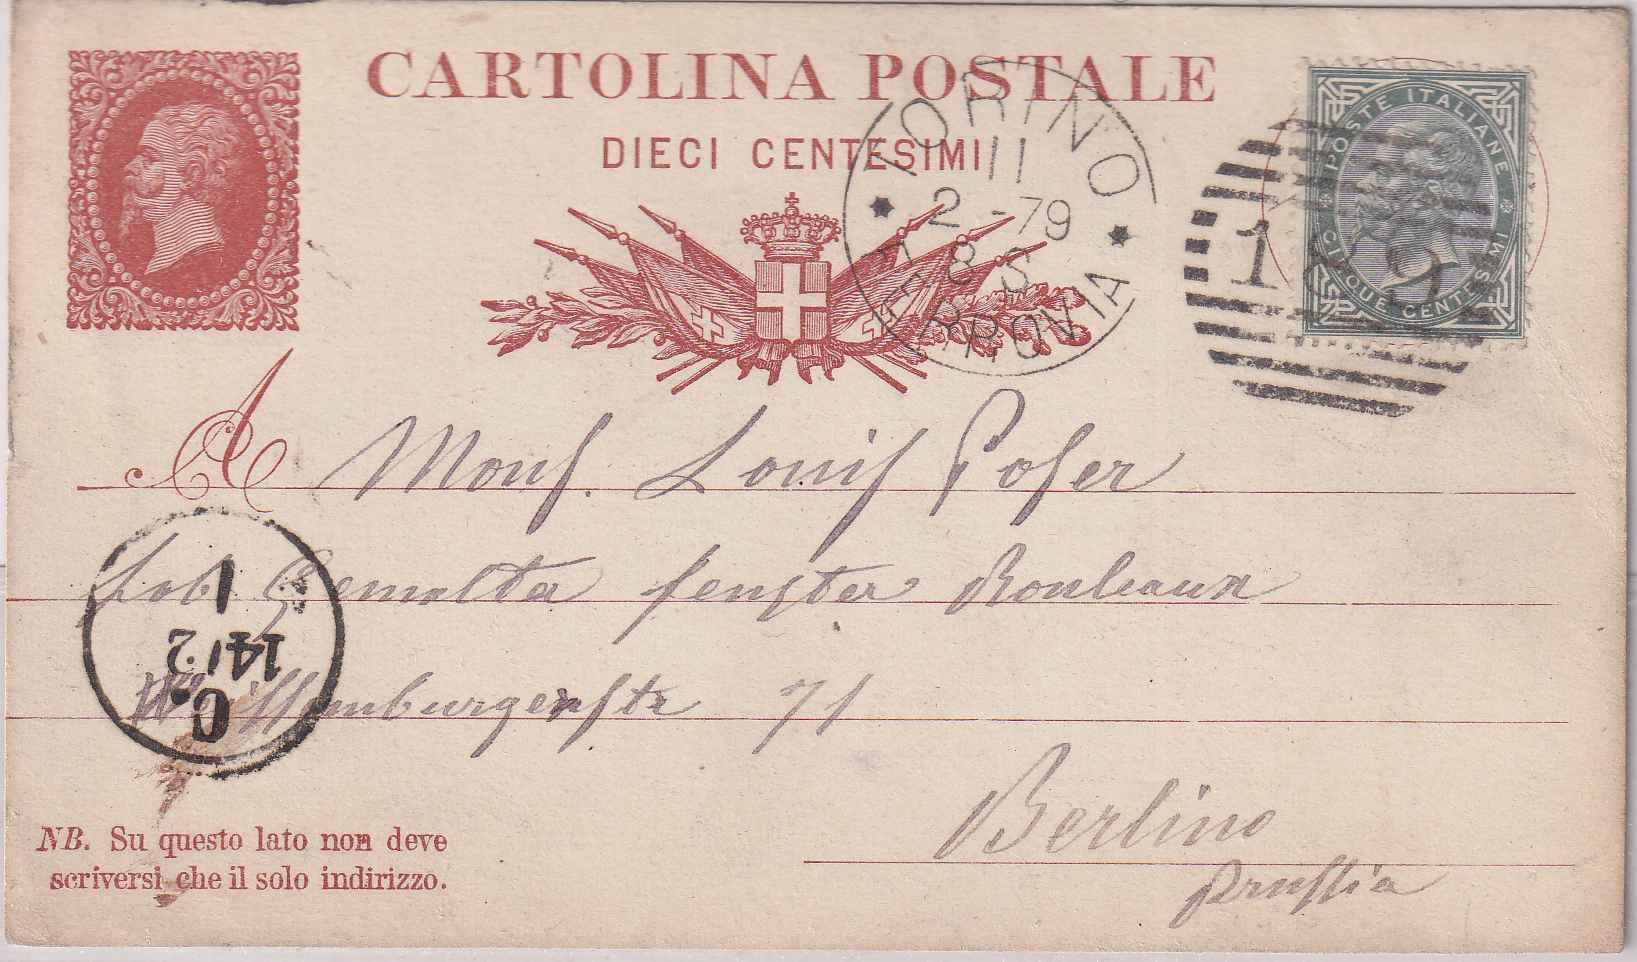 CARTOLINA POSTALE
DIECI CENTESIMI
TORINO
11
2 -79
8 S
FERROVIA
189
POSTE ITALIANE
CINQUE CENTESIMI
A Mons. Louis Poser
Fab Gemalter fenster Rouleaux
Hamburgerstr 71
Berlino
Prussia
1
14/2
C.
NB. Su questo lato non deve
scriversi che il solo indirizzo.